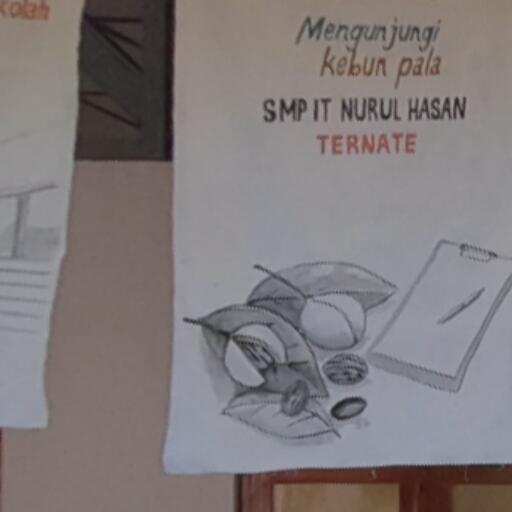 Mengunjungi
kebun pala
SMP IT NURUL HASAN
TERNATE